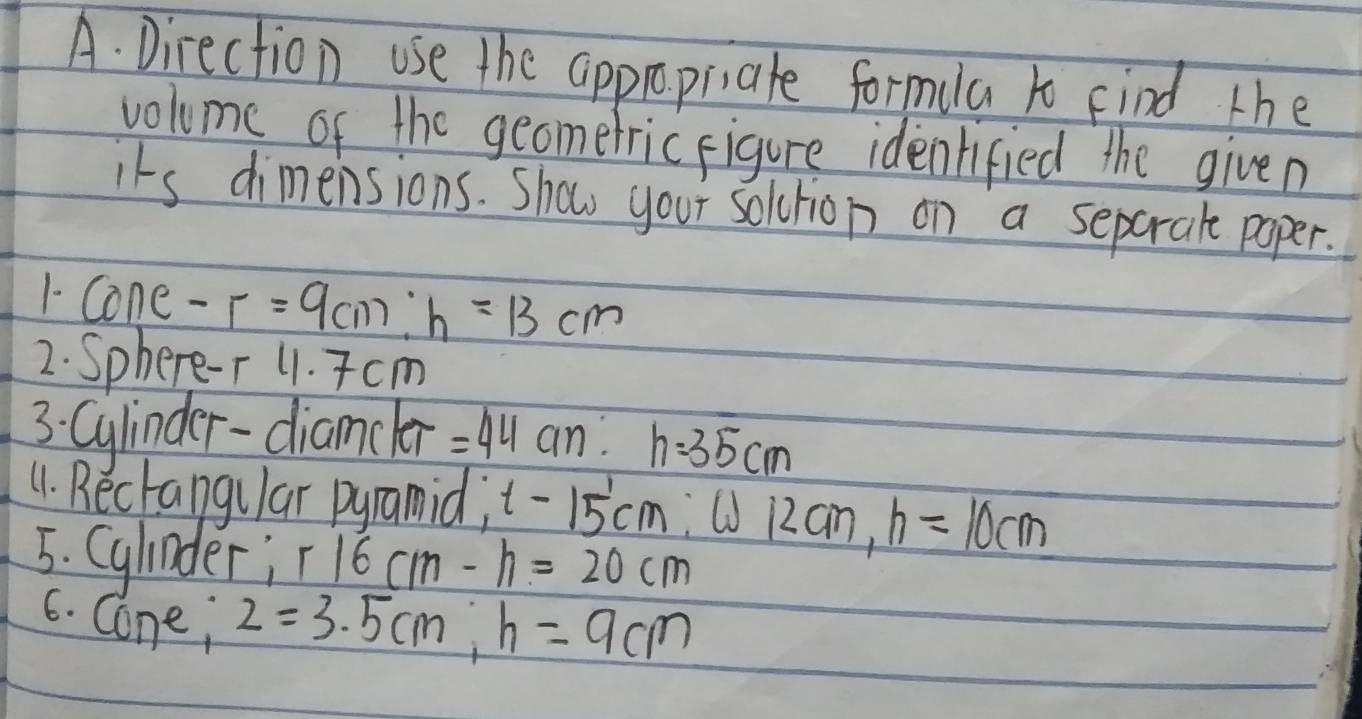 A. Direction use the appropriate formula to find the
volume of the geometric figure identified the given
its dimensions. Show your solution on a separate paper.
1. Cone - r = 9cm; h = 13 cm
2. Sphere - r 4.7cm
3. Cylinder - diameter = 44 cm: h=35cm
4. Rectangular pyramid; t - 15cm; W 12cm, h = 10cm
5. Cylinder; r 16 cm - h = 20 cm
6. Cone; 2 = 3.5cm; h = 9cm